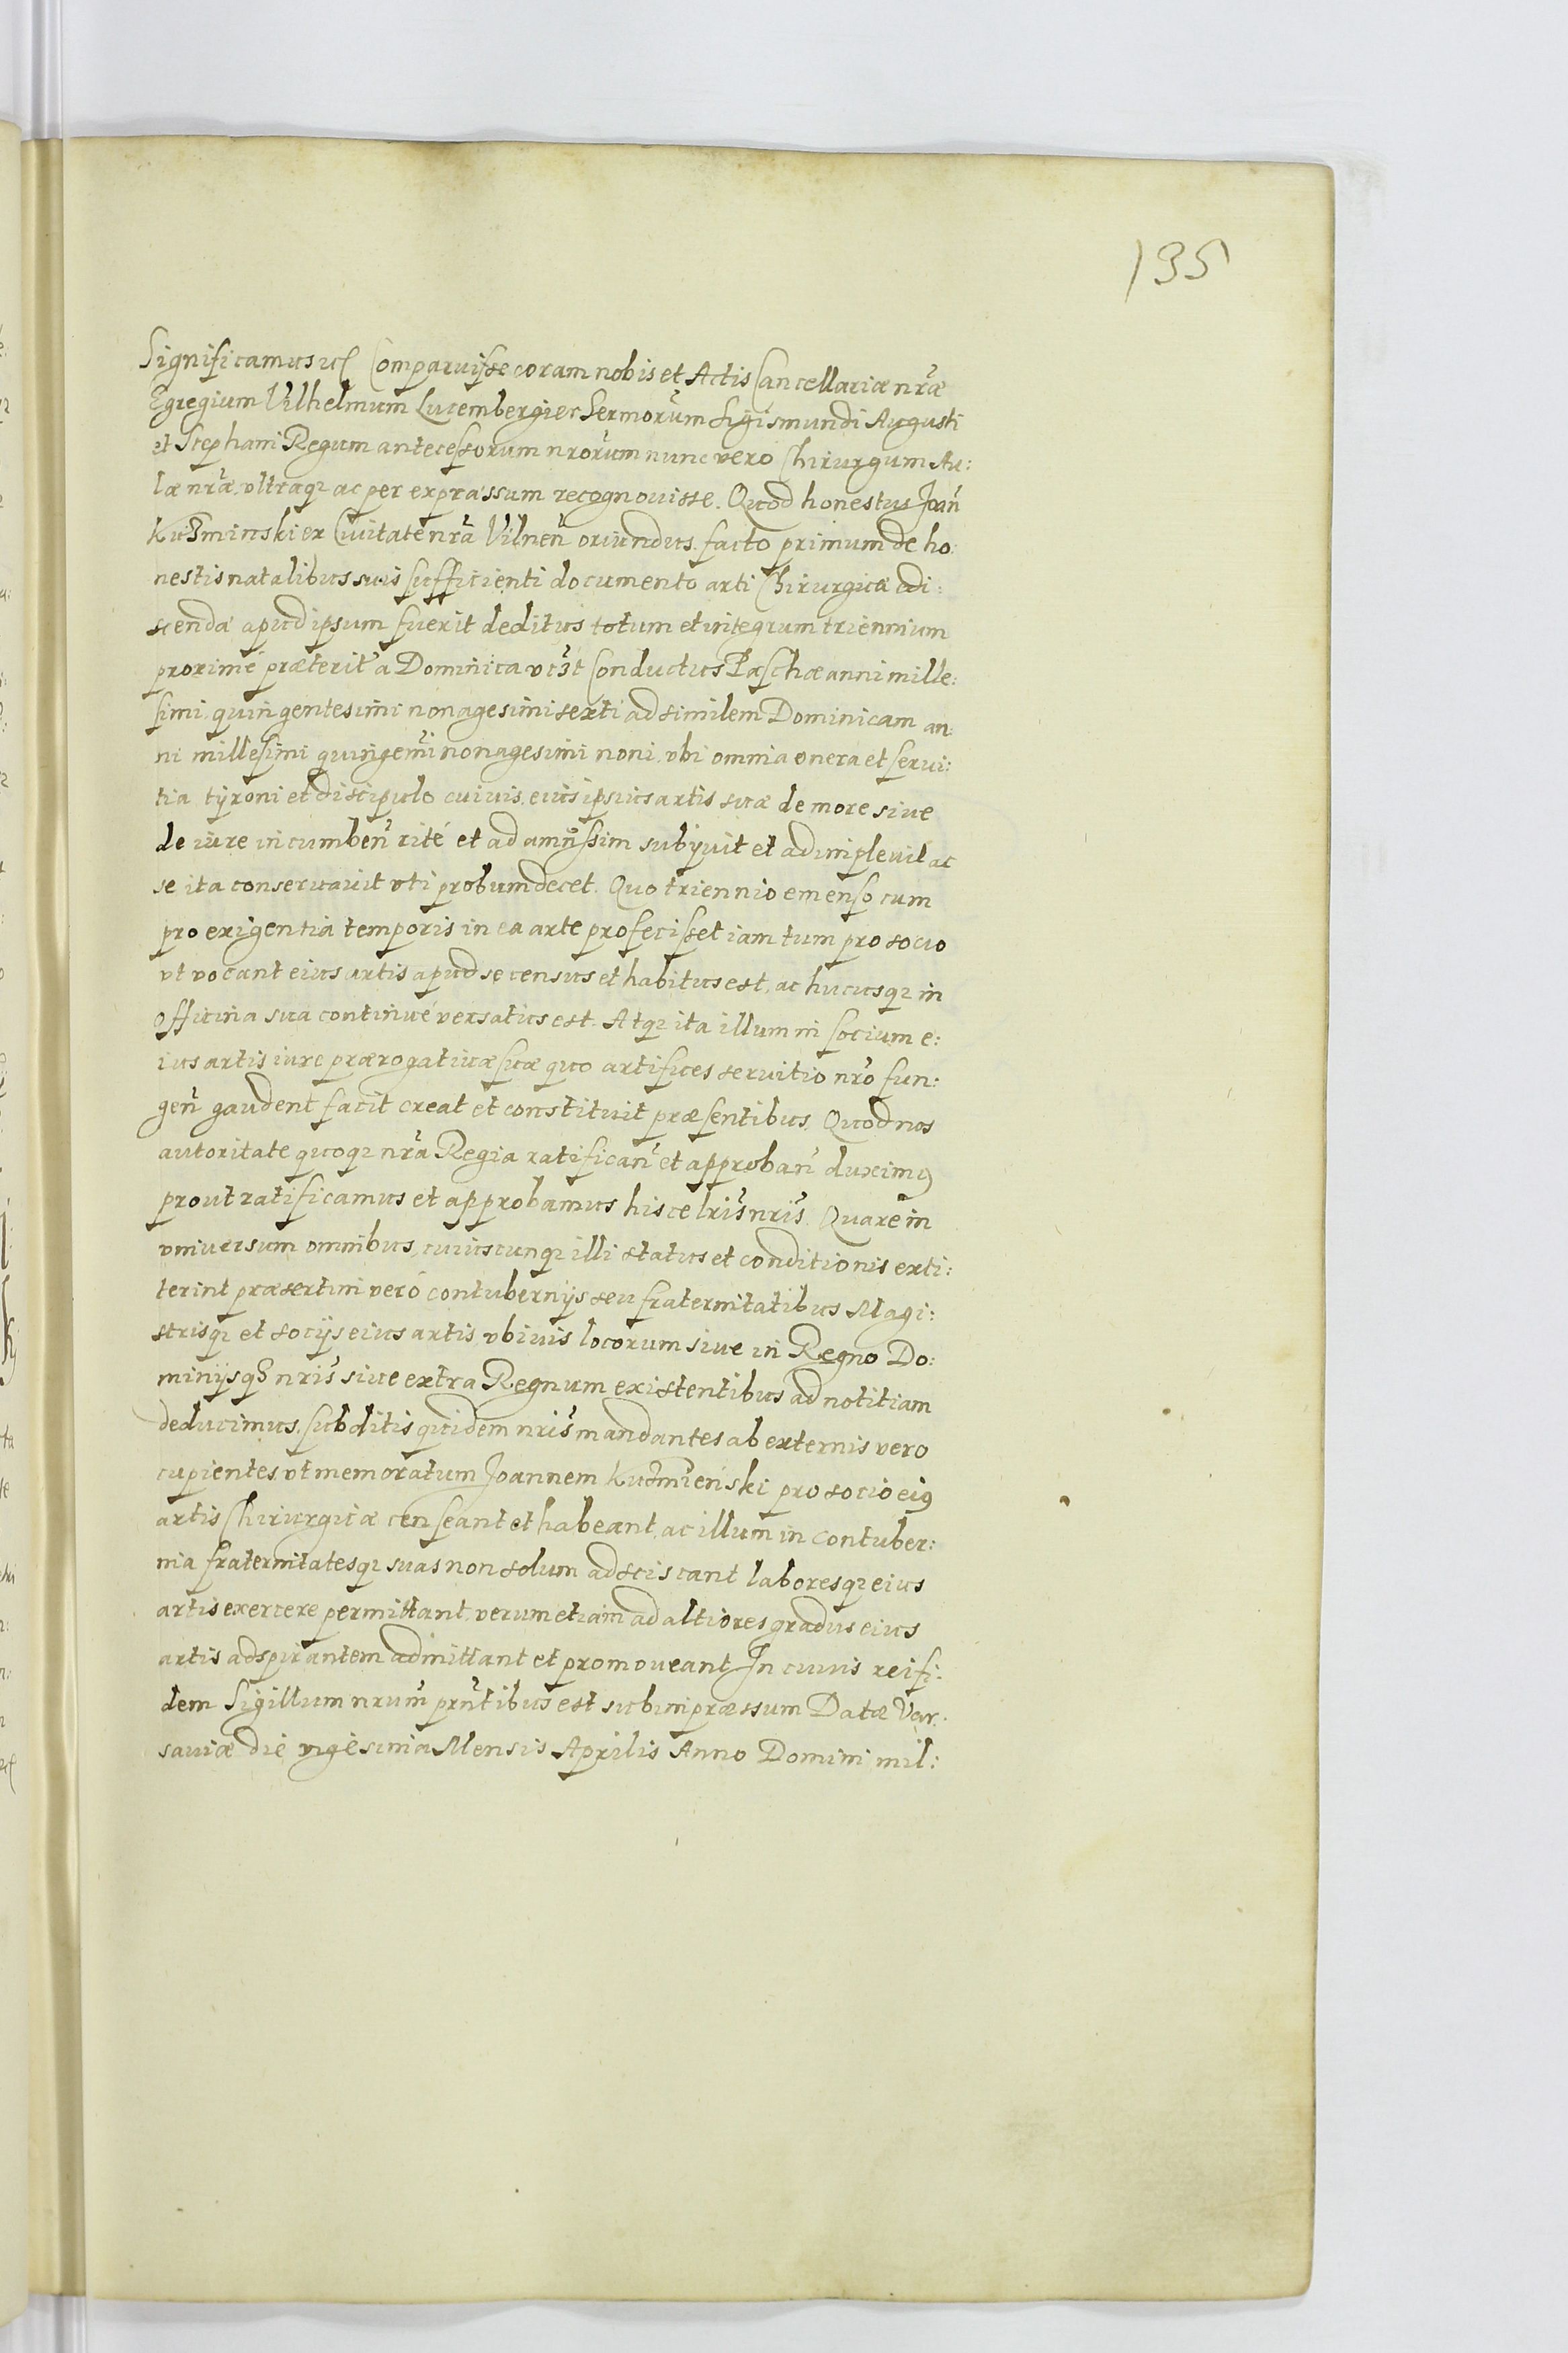 135
Significamus etc Comparuisse coram nobis et Actis Cancellariæ nr̃æ
Egregium Vilhelmum Lucembergier Sermorum Sigismundi Augusti
et Stephani Regum antecessorum nrorum nunc vero Chirurgum Au:
læ nr̃æ, vltraq; ac per expræssum recognouisse. Quod honestus Joañ
Kuśminski ex Ciuitate nr̃a Vilneñ oriundus, facto primum de ho:
nestis natalibus suis sufficienti documento arti Chirurgicæ edi:
scendæ apud ipsum fuerit deditus totum et integrum triennium
proximé præterit' a Dominica Conductus Paschæ anni mille:
simi quingentesimi nonagesimi sexti ad similem Dominicam an:
ni millesimi quingemi nonagesimi noni, vbi omnia onera et serui:
tia tyroni et discipulo cuiuis eius ipsius artis suæ de more siue
de iure incumbeñ rité et ad amussim subyuit et adimpleuit ac
se ita conseruauit vti probum decet. Quo triennio emenso cum
pro exigentia temporis in ea arte profecisset iam tum pro socio
vt vocant eius artis apud se census et habitus est, ac hucusq; in
officina sua continué versatus est. Atq; ita illum in socium e:
ius artis iure prærogatiuæ suæ quo artifices seruitio nr̃o fun:
geñ gaudent facit creat et constituit præsentibus. Quod nos
autoritate quoq; nr̃a Regia ratificañ et approbañ duximus
prout ratificamus et approbamus hisce lris nris. Quare in
vniuersum omnibus, cuiuscunq; illi status et conditionis exti:
terint præsertim veró contubernijs seu fraternitatibus Magi:
strisq; et socijs eius artis, vbiuis locorum siue in Regno Do:
minijsq; nris siue extra Regnum existentibus ad notitiam
deducimus. Subditis quidem nris mandantes ab externis vero
cupientes, vt memoratum Joannem Kuzmienski pro socio eius
artis Chirurgicæ censeant et habeant, ac illum in contuber:
nia fraternitatesq; suas non solum adsciscant laboresq; eius
artis exercere permittant, verum etiam ad altiores gradus eius
artis adspirantem admittant et promoueant. In cuius rei fi:
dem Sigillum nrum prñtibus est subimpræssum Datæ Var:
sauiæ die vigesima Mensis Aprilis Anno Domini mil: